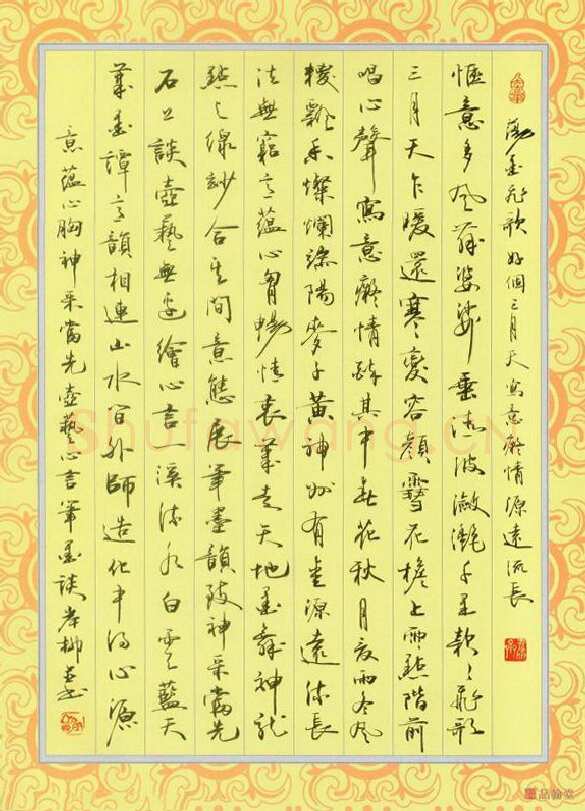 墨飛歌好個三月天寫意癡情源遠流長
惬意多風舞婆娑垂波瀲灩千柔歌
三月天乍暖還寒變容顏雪花檐上雨點階前
唱心聲寫意癡情醉其中春花秋月夏雨冬風
飄香燦爛陽麥子黃神州有源遠流長
法無窮意蘊心胸暢情表筆走天地墨舞神龍
點之線妙合其間意態展筆墨韻致神采當先
石上談壺藝無邊繪心言溪流水白雲藍天
筆墨譚高韻相連山水間外師造化中得心源
意蘊心胸神采當先壺藝心言筆墨談岸柳書
Shufawang.CN
品翰堂